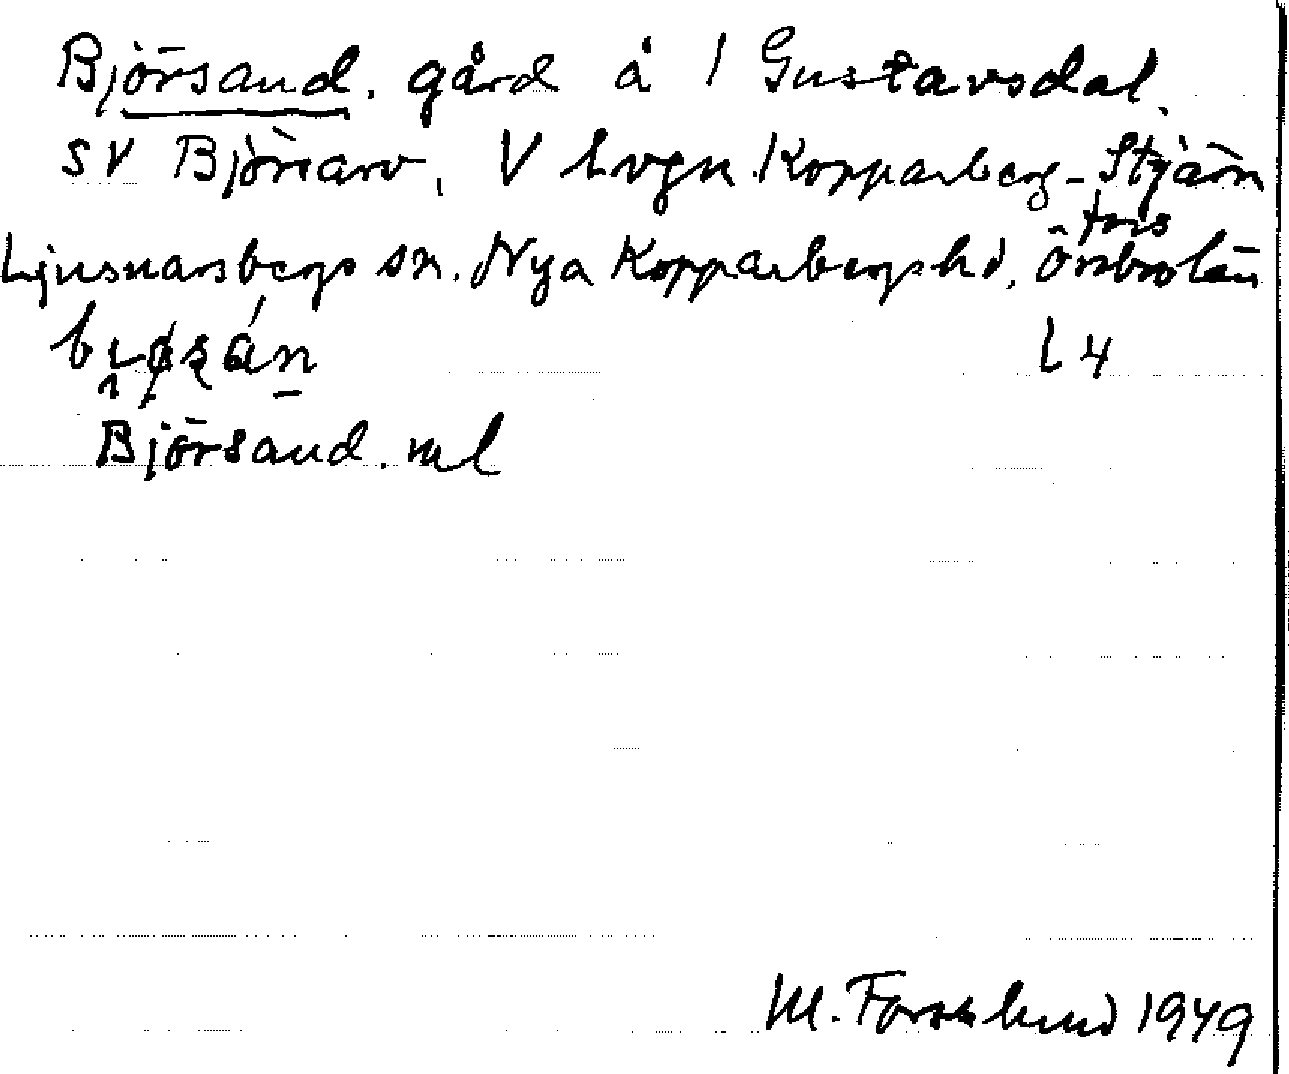 Björsand. gård å 1 Gustavsdal.
SV Björkarv, V lvgn Kopparberg-Stjärn
fors
Ljusnarsbergs sn. Nya Kopparbergs hd. Örebro län
L 4
Björsand. ml
M. Forsslund 1949